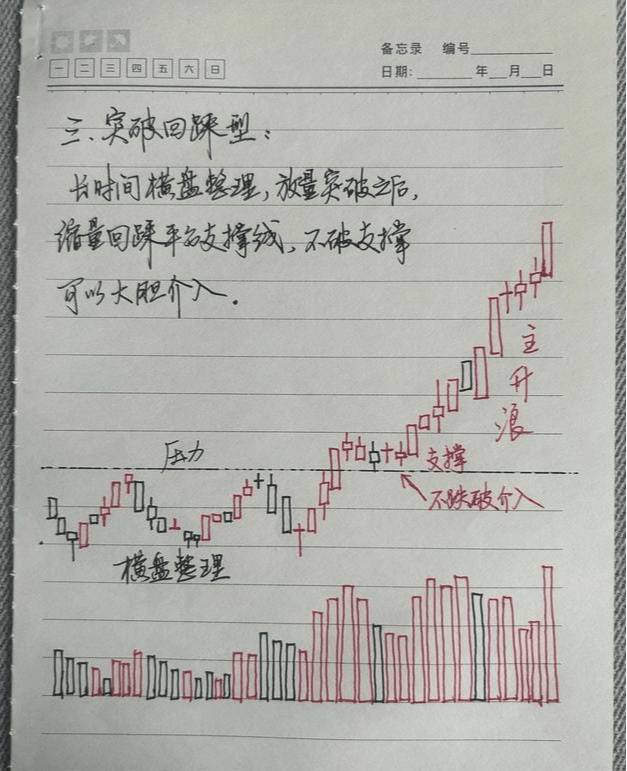 备忘录 编号
一 二 三 四 五 六 日
日期: 年 月 日
三、突破回踩型:
长时间横盘整理,放量突破之后,
缩量回踩平台支撑线,不破支撑
可以大胆介入.
主升浪
压力
支撑
不跌破介入
横盘整理